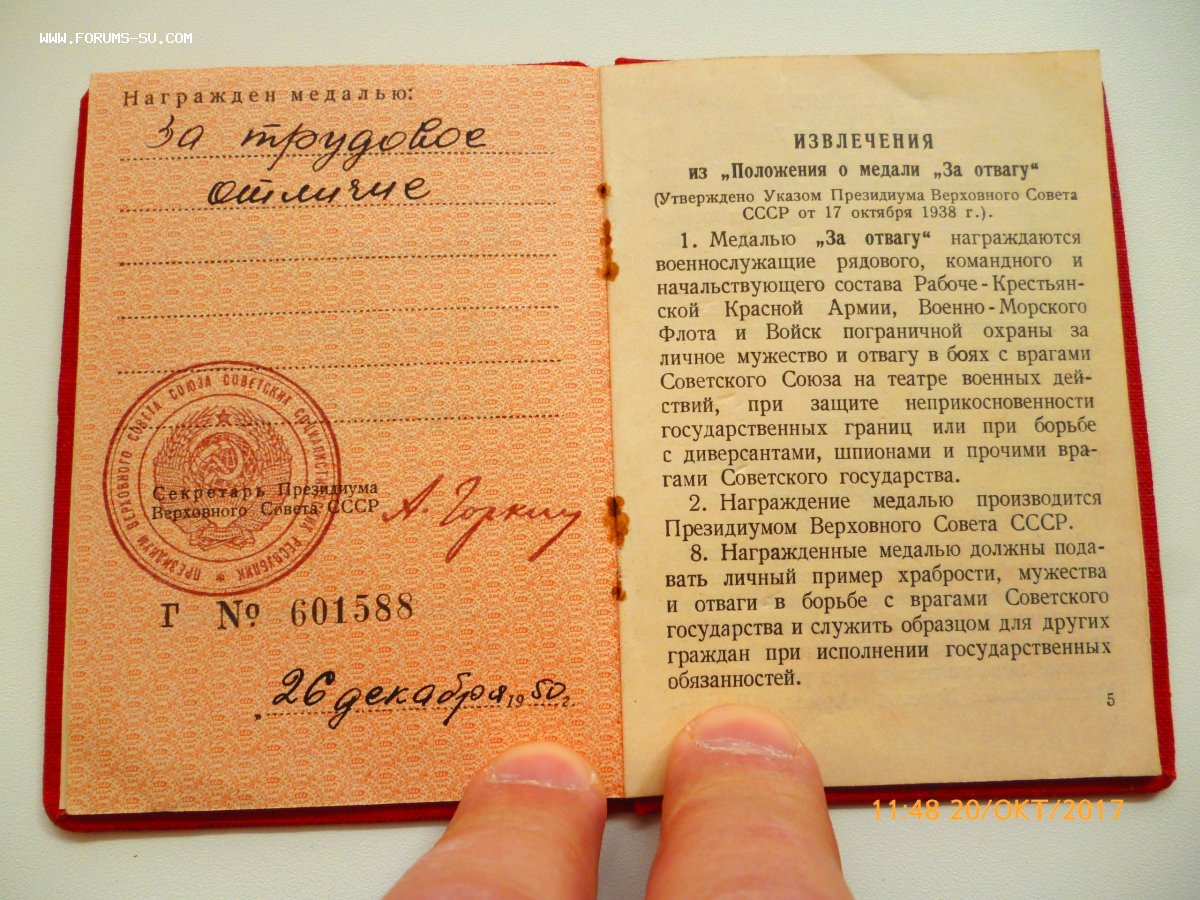 WWW.FORUMS-SU.COM
Награжден медалью:
За трудовое
отличие
ПРЕЗИДИУМ ВЕРХОВНОГО СОВЕТА СОЮЗА СОВЕТСКИХ СОЦИАЛИСТИЧЕСКИХ РЕСПУБЛИК *
Секретарь Президиума
Верховного Совета СССР
А. Горкин
Г № 601588
„26 декабря 1950 г.
ИЗВЛЕЧЕНИЯ
из „Положения о медали „За отвагу“
(Утверждено Указом Президиума Верховного Совета
СССР от 17 октября 1938 г.).
1. Медалью „За отвагу“ награждаются
военнослужащие рядового, командного и
начальствующего состава Рабоче-Крестьян-
ской Красной Армии, Военно-Морского
Флота и Войск пограничной охраны за
личное мужество и отвагу в боях с врагами
Советского Союза на театре военных дей-
ствий, при защите неприкосновенности
государственных границ или при борьбе
с диверсантами, шпионами и прочими вра-
гами Советского государства.
2. Награждение медалью производится
Президиумом Верховного Совета СССР.
8. Награжденные медалью должны пода-
вать личный пример храбрости, мужества
и отваги в борьбе с врагами Советского
государства и служить образцом для других
граждан при исполнении государственных
обязанностей.
5
11:48 20/ОКТ/2017